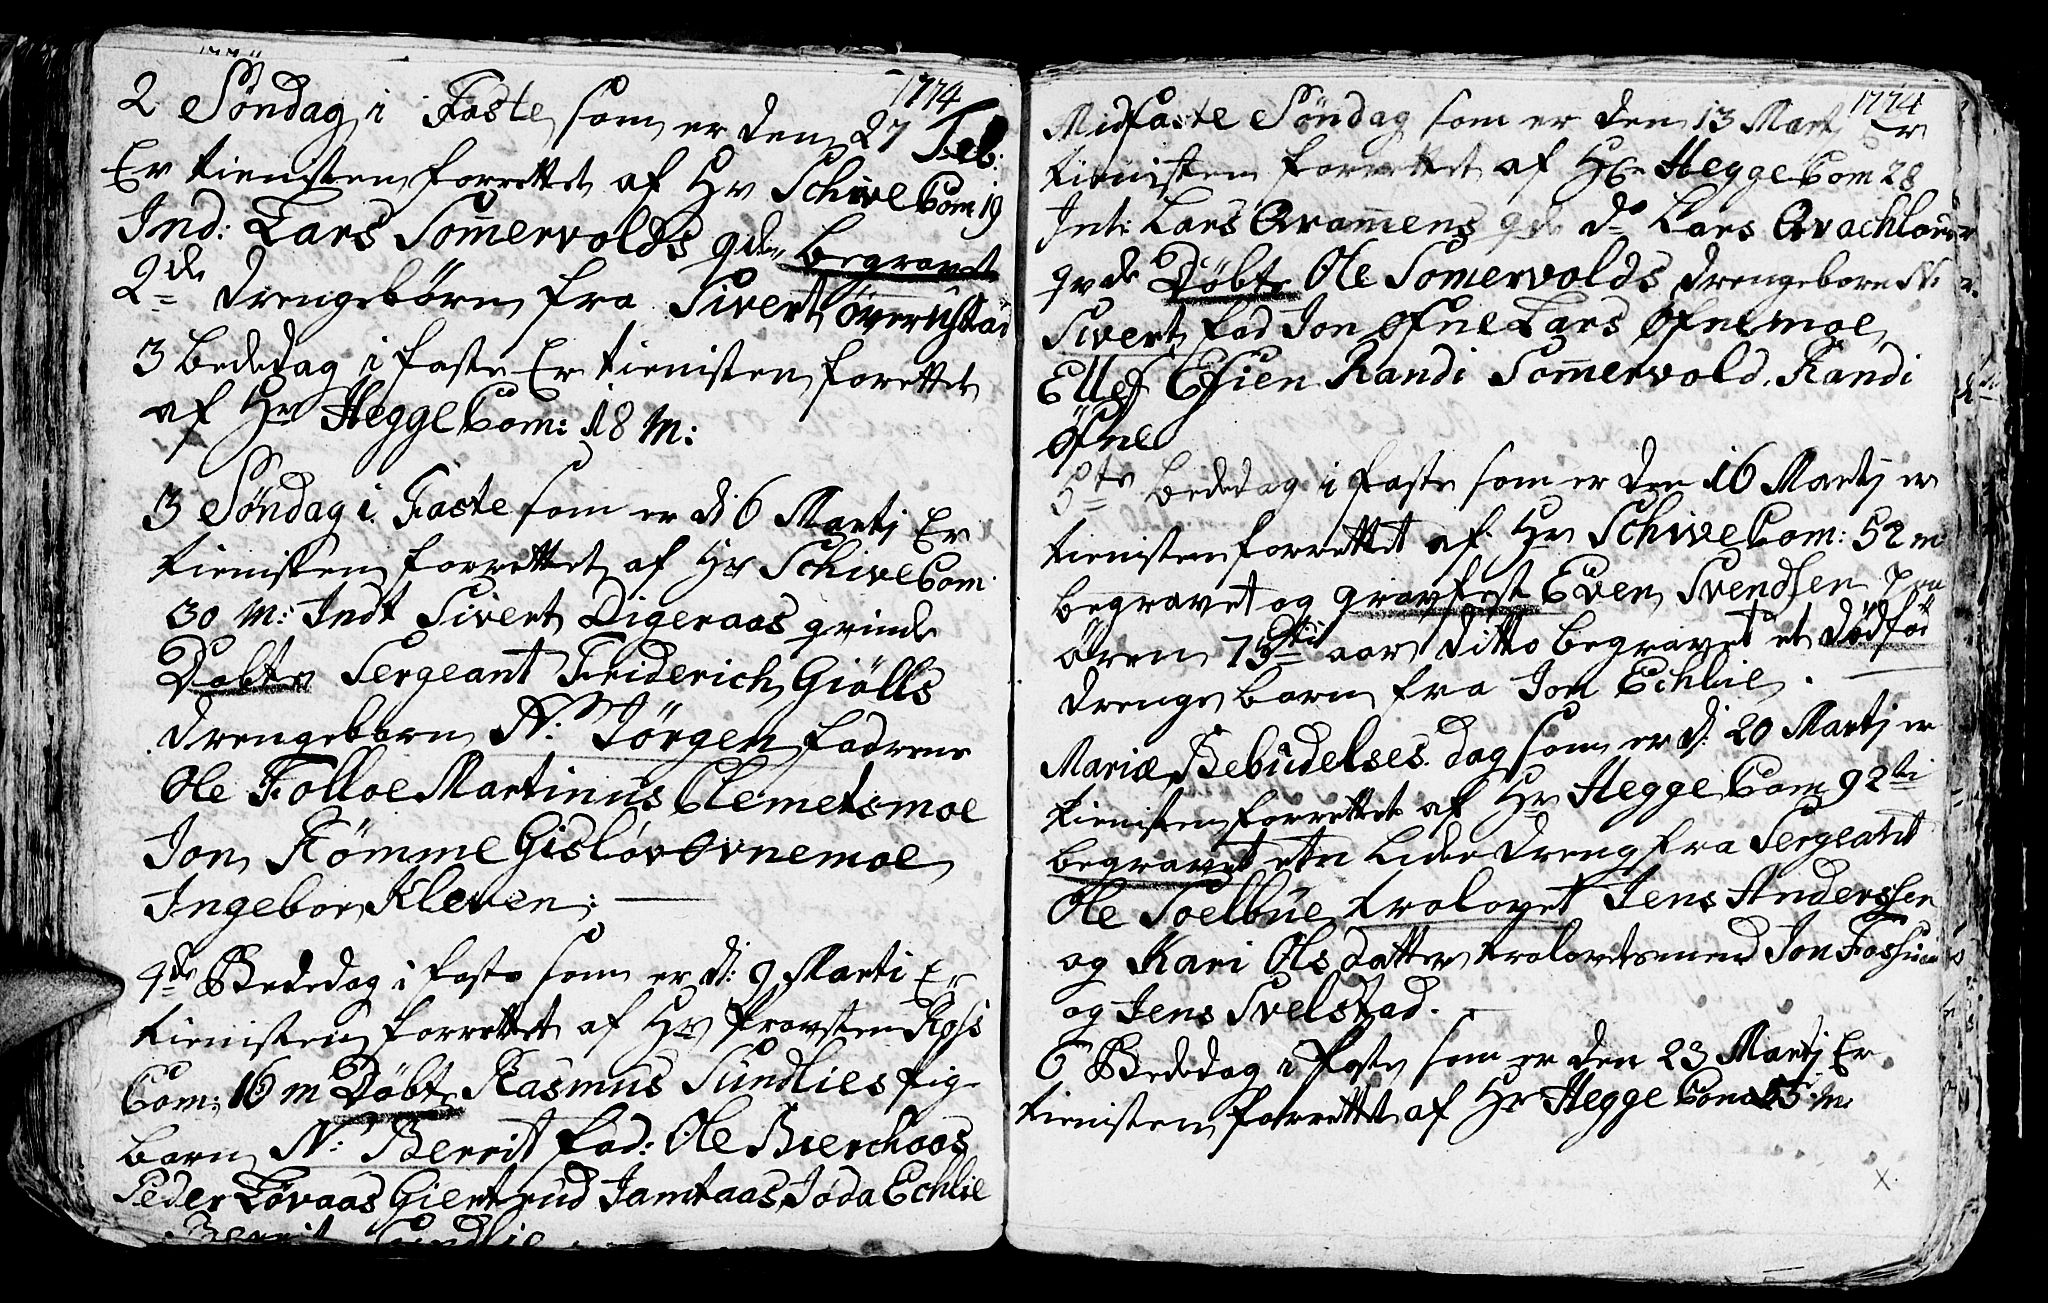 1774
2 Søndag i Faste som er den 27 Feb:
Er tienisten forrettet af Hr Schive Com 19
Ind: Lars Som̄ervolds qde begravet
2de drengebørn fra Sivert överустad
3 bededag i faste Er tienisten forettet
af Hr Hegge Com: 18 M:
3 Søndag i Faste som er d: 6 Martj Er
tienisten forrettet af Hr Schive Com
30 M: Indt Sivert Digeraas qvinde
Døbte Sergeant Friderich Giølls
drengebarn N: Jörgen fadrene
Ole Folloe Martinus Clemetsmoe
Jon Rømme Gisløv Ovnemoe
Ingebor Kleven:
4de Bededag i faste som er d: 9 Marti Er
tienisten forrettet af Hr Provsten Ross
Com: 16 m Døbte Rasmus Sundlies pig
barn N: Berrit fad: Ole Bierchaas
Peder Løvaas Giertrud Jamtaas Joda Echlie
Berrit Sundlie
1774
Midfaste Søndag som er den 13 Martj Er
tienisten forrettet af Hr Hegge Com 28
Int: Lars Qvam̄ens qde do Lars
qvde Döbte Ole Somervolds drengebarn N:
Sivert fad Jon Öfne Lars Öfnemoe
Ellef Efien Randi Som̄ervold. Randi
Öfne
5te bededag i faste som er den 16 Martj er
tienisten forrettet af Hr Schive Com: 52 m
begravet og gravfest Even Svendsen
ören 75 aar ditto begravet et dödföd
drenge barn fra Jon Echlie.
Mariæ Bebudelses dag som er d: 20 Martj er
tienisten forrettet af Hr Hegge Com 92ti
begravet en liden dreng fra Sergeant
Ole Soelbue trolovet Jens Anderssen
og Kari Olsdatter trolovetsmend Jon Fossum
og Jens Svelstad.
6 Bededag i faste som er den 23 Martj Er
tienisten forrettet af Hr Hegge Com 55 m.
x